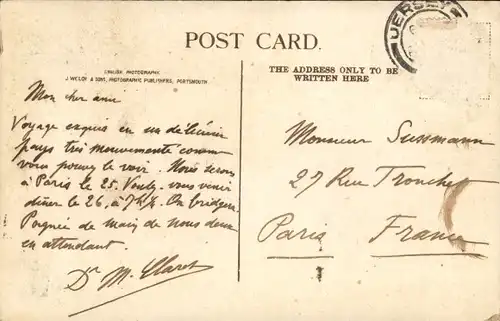 POST CARD.
JERSEY
ENGLISH PHOTOGRAPHS
J. WELCH & SONS, PHOTOGRAPHIC PUBLISHERS, PORTSMOUTH
THE ADDRESS ONLY TO BE
WRITTEN HERE
Mon cher ami
Voyage exquis en un délicieux
pays très mouvementé comme
vous pouvez le voir. Nous serons
à Paris le 25. Voulez-vous venir
dîner le 26, à 7h½. On bridgera
Poignée de main de nous deux
en attendant.
Dr M. Claret
Monsieur Sussmann
27 Rue Tronchet
Paris France